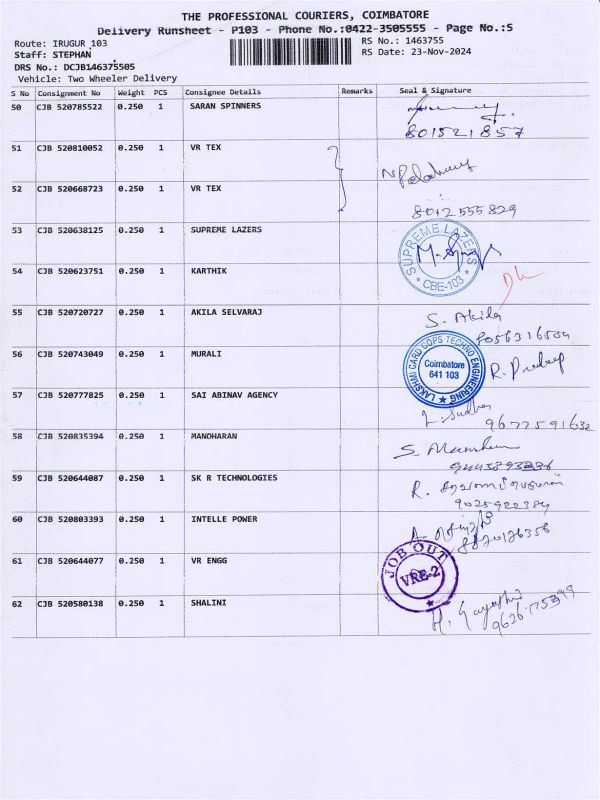 THE PROFESSIONAL COURIERS, COIMBATORE
Delivery Runsheet - P103 - Phone No.:0422-3505555 - Page No.:5
Route: IRUGUR 103
RS No.: 1463755
Staff: STEPHAN
RS Date: 23-Nov-2024
DRS No.: DCJB146375505
Vehicle: Two Wheeler Delivery
S No Consignment No Weight PCS Consignee Details Remarks Seal & Signature
50 CJB 520785522 0.250 1 SARAN SPINNERS
801521857
51 CJB 520810052 0.250 1 VR TEX
52 CJB 520668723 0.250 1 VR TEX
8012555829
53 CJB 520638125 0.250 1 SUPREME LAZERS
SUPREME LAZERS
CBE-103
54 CJB 520623751 0.250 1 KARTHIK
55 CJB 520720727 0.250 1 AKILA SELVARAJ
S. Akila
56 CJB 520743049 0.250 1 MURALI
LAKSHMI CARD COPS TECHNO ENGINEERING
Coimbatore
641 103
57 CJB 520777825 0.250 1 SAI ABINAV AGENCY
9677591632
58 CJB 520835394 0.250 1 MANOHARAN
59 CJB 520644087 0.250 1 SK R TECHNOLOGIES
R.
60 CJB 520803393 0.250 1 INTELLE POWER
61 CJB 520644077 0.250 1 VR ENGG
JOB OUT
VRE-2
62 CJB 520580138 0.250 1 SHALINI